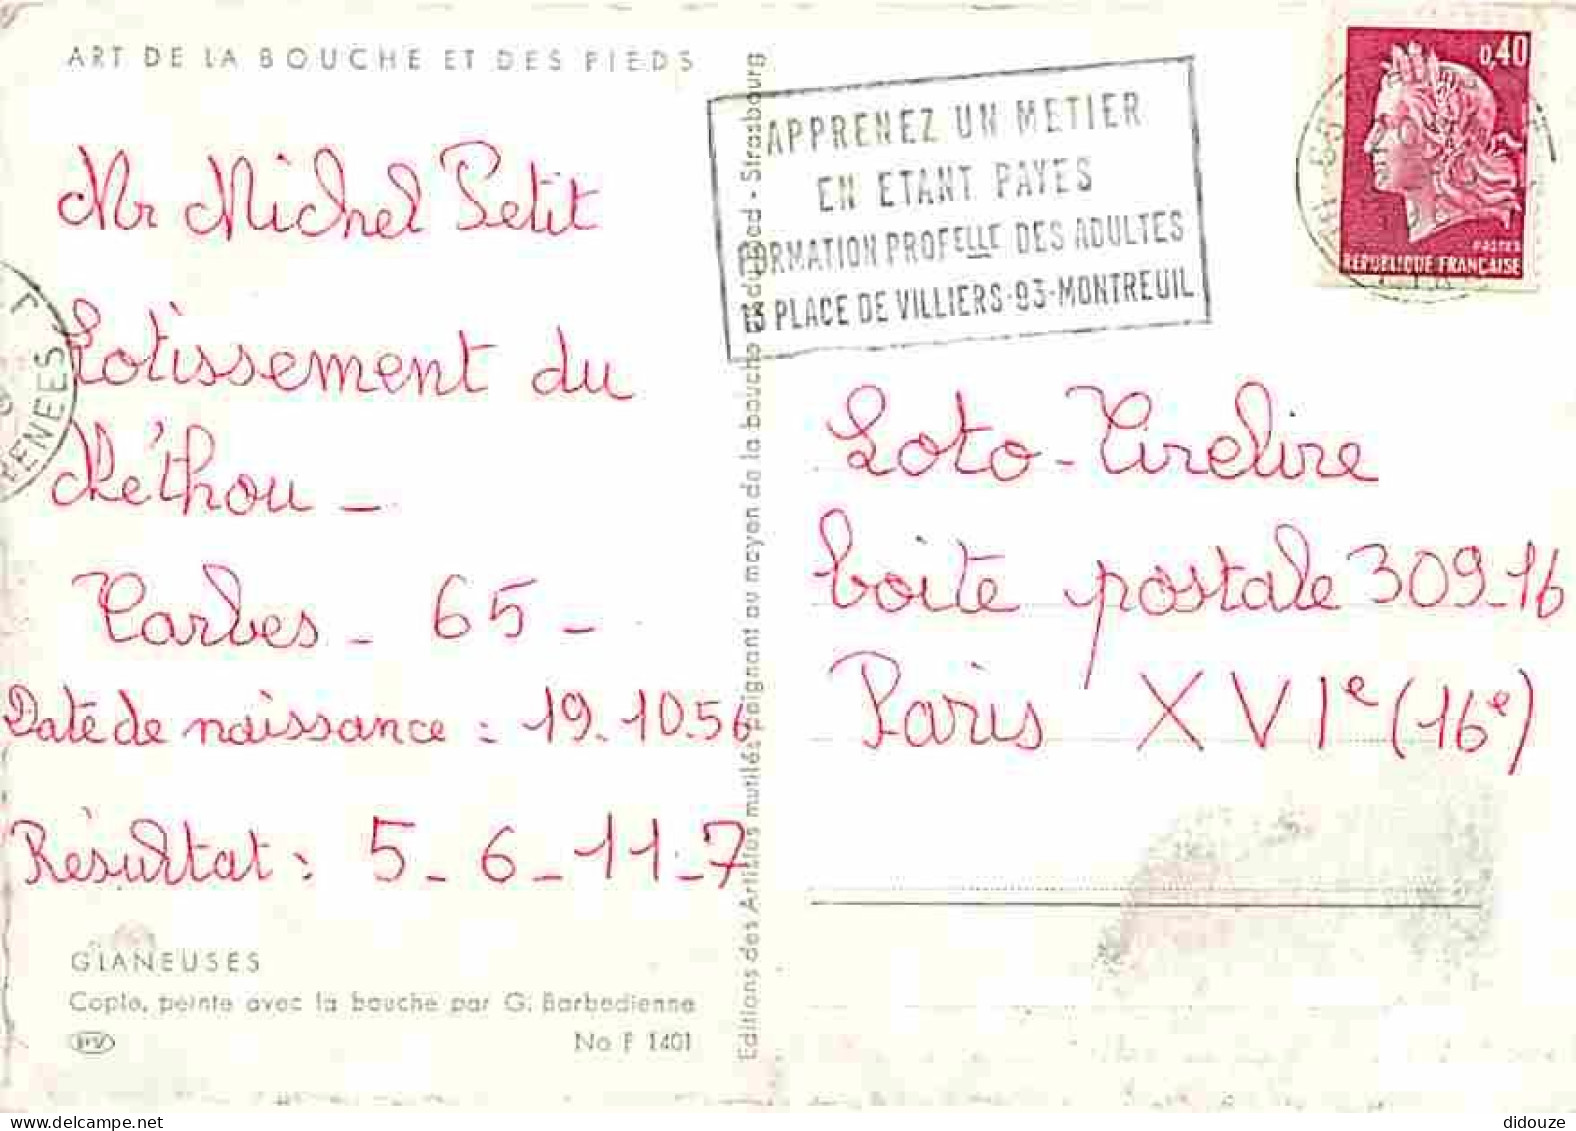 ART DE LA BOUCHE ET DES PIEDS
Mr Michel Petit
Lotissement du
Méthou -
Tarbes - 65 -
Date de naissance : 19.10.56
Résultat : 5 - 6 - 11 - 7
GLANEUSES
Copie, peinte avec la bouche par G. Barbedienne
No F 1401
Editions des Artistes mutilés peignant au moyen de la bouche - Strasbourg
APPRENEZ UN METIER
EN ETANT PAYES
FORMATION PROFELLE DES ADULTES
13 PLACE DE VILLIERS-93-MONTREUIL
0,40
POSTES
REPUBLIQUE FRANÇAISE
Loto-Tirelire
boite postale 309-16
Paris XVIe (16e)
didouze